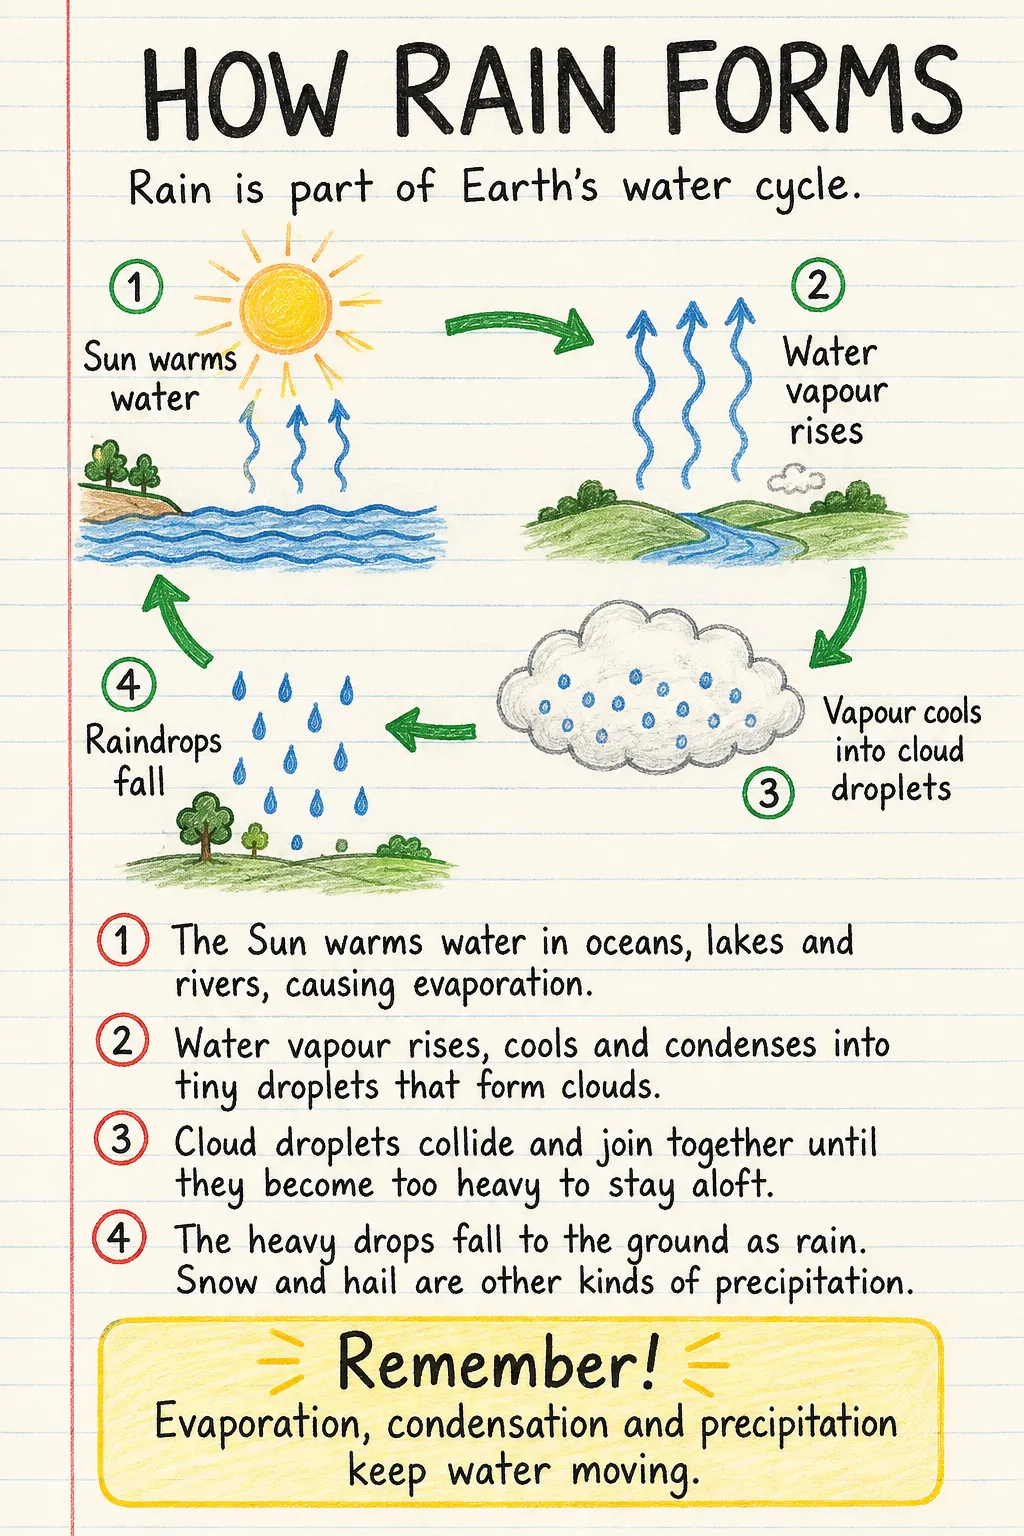 HOW RAIN FORMS
Rain is part of Earth's water cycle.
1
Sun warms
water
2
Water
vapour
rises
4
Raindrops
fall
Vapour cools
into cloud
droplets
3
1 The Sun warms water in oceans, lakes and
rivers, causing evaporation.
2 Water vapour rises, cools and condenses into
tiny droplets that form clouds.
3 Cloud droplets collide and join together until
they become too heavy to stay aloft.
4 The heavy drops fall to the ground as rain.
Snow and hail are other kinds of precipitation.
Remember!
Evaporation, condensation and precipitation
keep water moving.